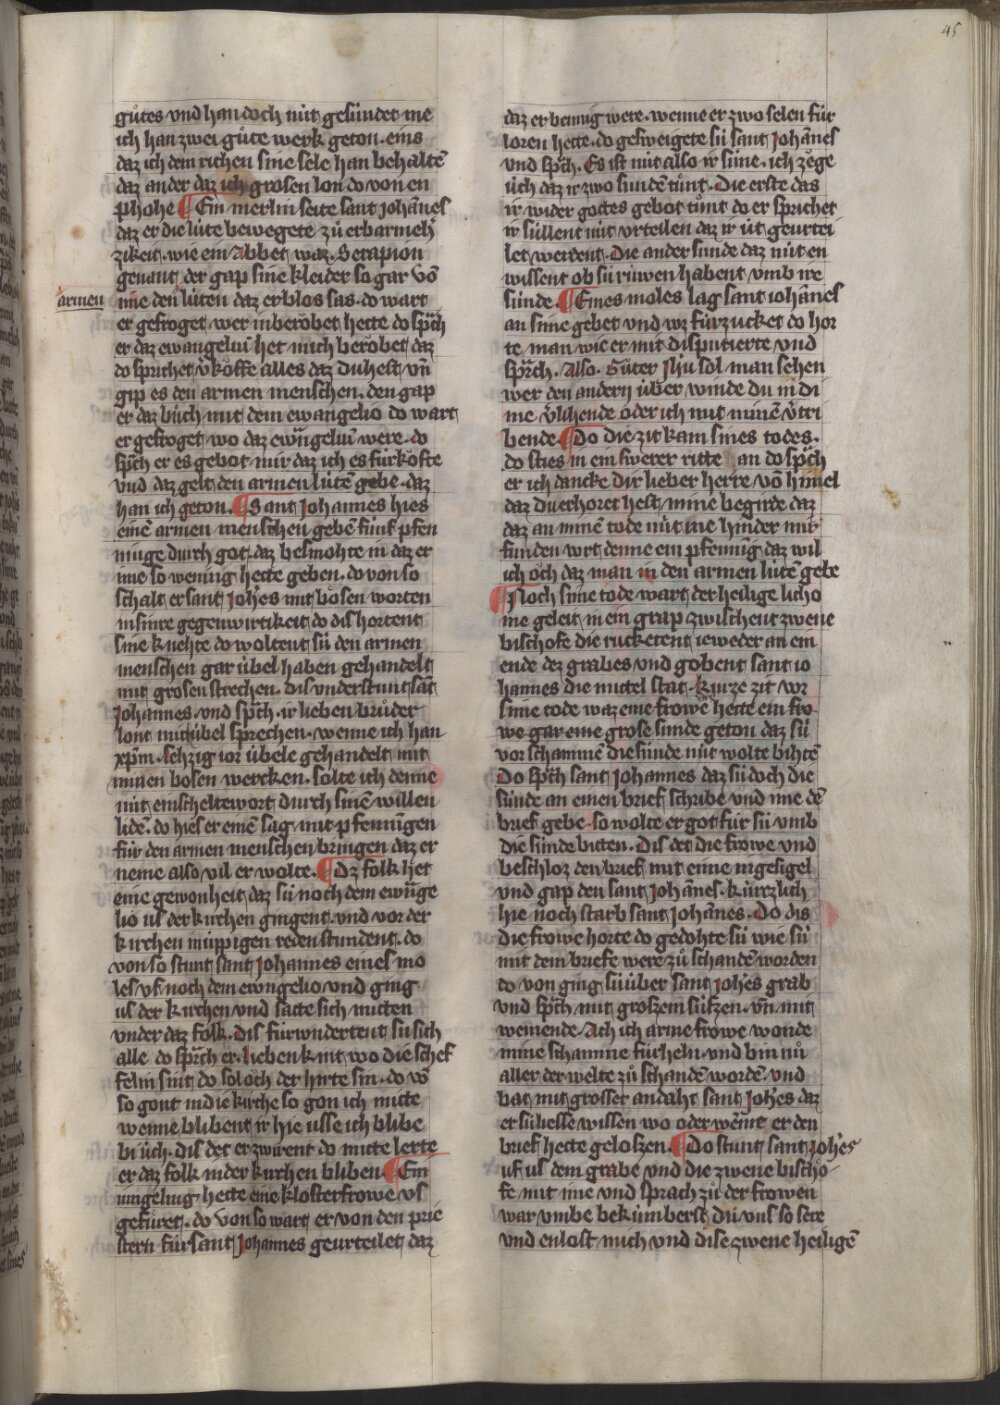 45
gůtes vnd han doch nüt gesündet me
ich han zwei gůte werk geton. eins
daz ich dem richen sine sele han behaltē
daz ander daz ich grosen lon do von en
phohe Ein merlin seite sant Johānes
daz er die lüte bewegete zů erbarmeh
zikeit. wie ein Abbet waz. Serapion
genant der gap sine kleider so gar vō
armen
ime den lüten daz er blos sas. do wart
er gefroget wer in beröbet hette do sp̄ch
er daz ewangeluī het mich beröbet daz
do sprichet v̓köffe alles daz du hest vn̄
gip es den armen menschen. den gap
er daz bůch mit dem ewangelio do wart
er gefroget wo daz ewāngeluī were. do
sp̄ch er es gebot mir daz ich es fürköfte
vnd daz gelt den armen lütē gebe. daz
han ich geton. Sant Johannes hies
einē armen menschen gebē fünf pfen
ninge durch got. daz v̓smohte in daz er
ime so wenig hette geben. do von so
schalt er sant Joh̓es mit bosen worten
in sinre gegenwirtikeit do dis hortent
sine knehte do woltent sü den armen
menschen gar übel haben gehandelt
mit grosen strechen. dis vnderstunt sāt
Johannes. vnd sp̄ch. ir lieben brůder
lont mich übel sprechen. wenne ich han
xp̄m. sehzig ior übele gehandelt mit
minen bosen wercken. solte ich denne
nüt ein scheltewort durch sinē willen
lidē. do hies er einē sag mit pfennīgen
für den armen menschen bringen daz er
neme also vil er wolte. Dz folk het
eine gewonheit daz sü noch dem ewāge
lio us der kirchen gingent. vnd vor der
kirchen müssigen reden stundent. do
von so stunt sant Johannes eines mo
les vf noch dem ewngelio vnd ging
us der kirchen vnd satte sich mitten
vnder daz folk. dis fürwundertent sü sich
alle. do sprāch er. lieben kint wo die schef
felin sint do sol och der hirte sin. do vō
so gont in die kirche so gon ich mitte
wenne blibent ir hie usse ich blibe
bi üch. dis det er zwirent do mitte lerte
er daz folk in der kirchen bliben Ein
iungeling hette eine klosterfrowe vs
gefüret. do von so wart er von den prie
stern für sant Johannes geurteilet daz
daz er bennig were. wenne er zwo selen für
loren hette. do gesweigete sü sant Johānes
vnd sp̄ch. Es ist nüt also ir süne. ich zöge
üch daz ir zwo sundē tůnt. Die erste das
ir wider gottes gebot tůnt do er sprichet
ir süllent nüt vrteilen daz ir üt geurtei
let werdent. Die ander sunde daz nüt en
wissent ob sü rüwen habent vmb ire
sünde. Eines moles lag sant iohānes
an sime gebet vnd wz fürzucket do hor
te man wie er mit disputierte vnd
sp̄rch. Also. Gůter Jh̓u sol man sehen
wer den andern über winde du in di
me v̓lihende oder ich mit minē v̓tri
bende. Do die zit kam sines todes.
do sties in ein swerer ritte an do sp̄ch
er ich dancke dir lieber herre vō himel
daz du erhoret hest mine begirde daz
daz an minē tode nüt me hinder mir
funden wrt denne ein pfennīg daz wil
ich och daz man in den armen lütē gebe
Noch sime tode wart der heilige licho
me geleit in ein grap zwischent zwene
bischofe die rucketent ieweder an ein
ende dez grabes vnd gobent sant io
hannes die mittel stat. Kurze zit vor
sime tode waz eine frowē hette ein fro
we gar eine grose sunde geton daz sü
vor schammē die sunde nüt wolte bihtē
Do sp̄ch sant Johannes daz sü doch die
sünde an einen brief schribe vnd ime dē
brief gebe. so wolte er got für sü vmb
die sünde bitten. Dis det die frowe vnd
beschloz den brief mit eime ingesigel
vnd gap den sant Johānes. Kürzlich
hie noch starb sant Johānes. Do dis
die frowe horte do gedohte sü wie sü
mit dem briefe were zů schandē worden
do von ging sü über sant Joh̓es grab
vnd sp̄ch mit groszem süfzen. vn̄ mit
weinende. Ach ich arme frowe wonde
mine schamme fürheln. vnd bin nů
aller der welte zů schandē wordē. vnd
bat mit grosser andaht sant Joh̓es daz
er sü liesse wissen wo oder weme er den
brief hette geloszen. Do stunt sant Joh̓es
uf us dem grabe vnd die zwene bischo
fe mit ime vnd sprach zů der frowen
war vmbe bekümberst du vns so sere
vnd enlost mich vnd dise zwene heiligē